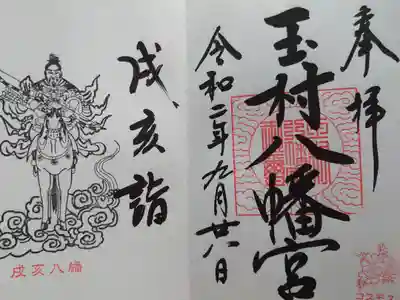 奉拝
玉村八幡宮
令和二年九月廿八日
戌亥詣
戌亥八幡